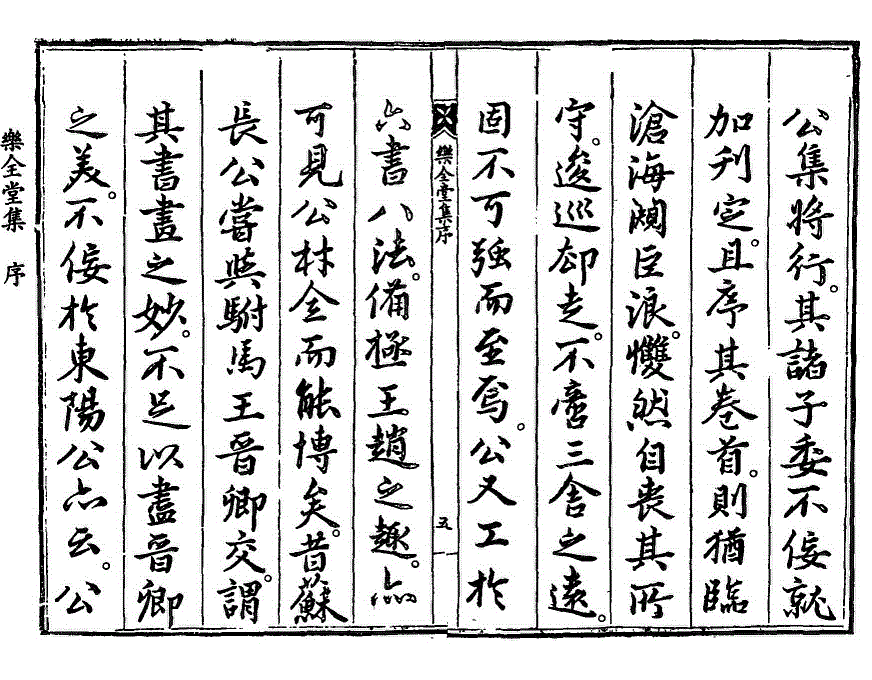 公集將行。其諸子委不佞就
加刊定。且序其卷首。則猶臨
滄海闚巨浪。戄然自喪其所
守。逡巡却走。不啻三舍之遠。
固不可强而至焉。公又工於
樂全堂集序
五
六書八法。備極王趙之趣。亦
可見公材全而能博矣。昔蘇
長公嘗與駙馬王晉卿交。謂
其書畫之妙。不足以盡晉卿
之美。不佞於東陽公亦云。公
樂全堂集 序